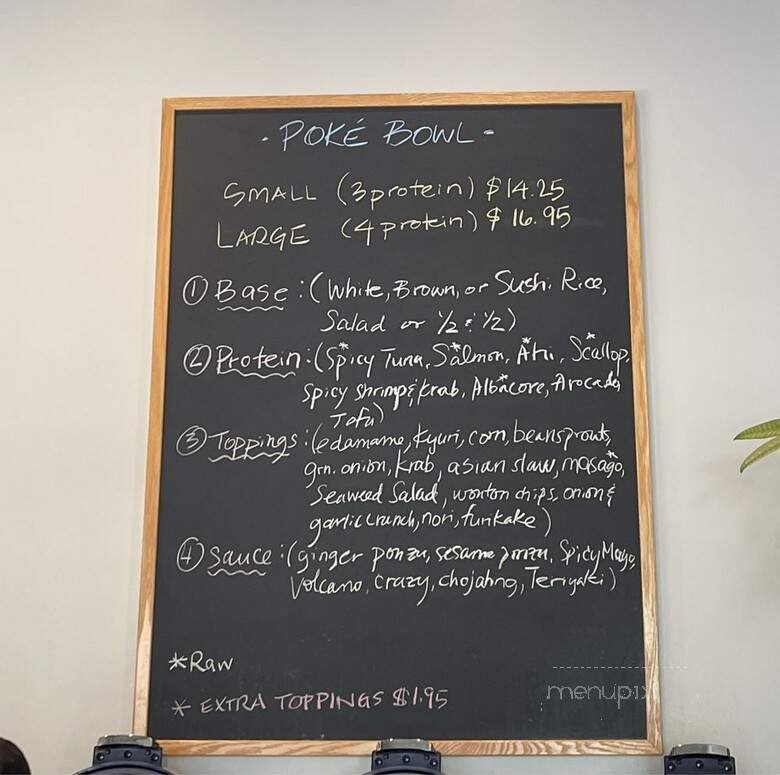 · POKÉ BOWL ·
SMALL (3 protein) $14.25
LARGE (4 protein) $16.95
① Base: (White, Brown, or Sushi Rice,
Salad or 1/2 & 1/2)
② Protein: (Spicy* Tuna, Salmon*, Ahi*, Scallop*,
Spicy shrimp & Krab, Albacore*, Avocado,
Tofu)
③ Toppings: (edamame, Kyuri, corn, beansprouts,
grn. onion, Krab, asian slaw, masago*,
Seaweed Salad, wonton chips, onion &
garlic crunch, nori, furikake)
④ Sauce: (ginger ponzu, sesame ponzu, Spicy Mayo,
Volcano, crazy, chojahng, Teriyaki)
*Raw
* EXTRA TOPPINGS $1.95
menupix